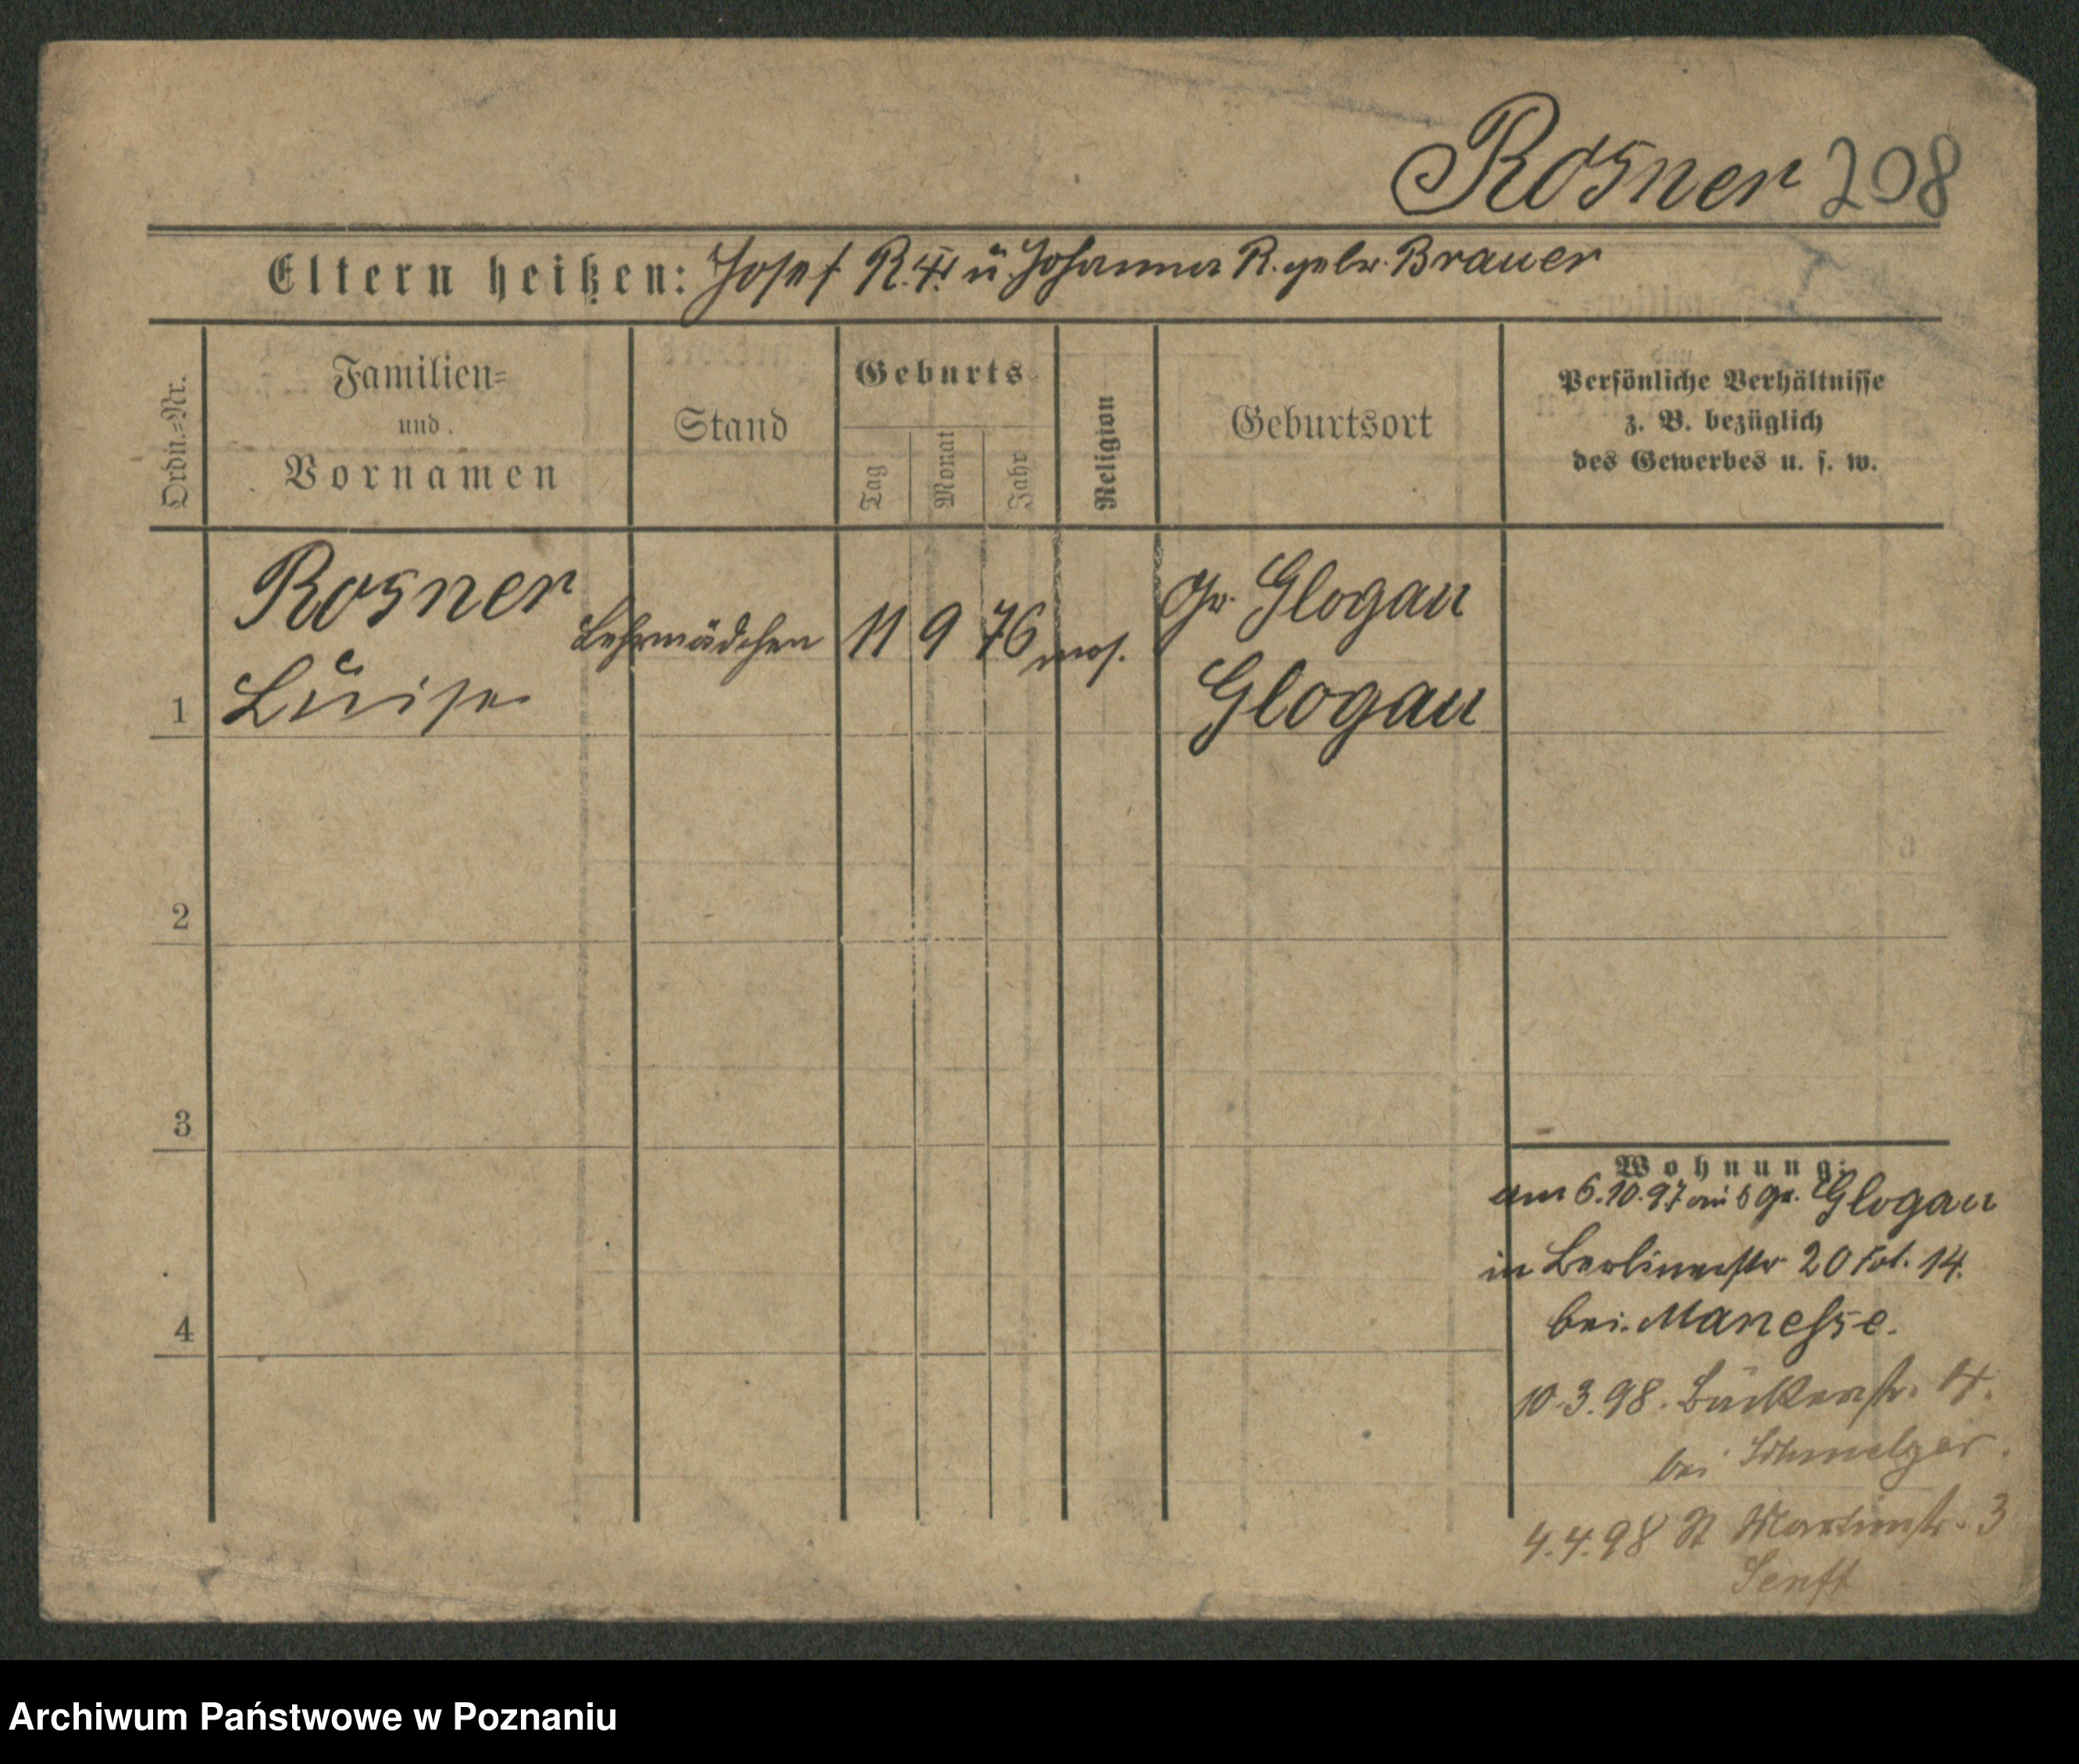 Rosner 208
Eltern heißen: Josef R. u. Johanna R. geb. Brauer
Ordn.=Nr.
Familien=
und
Vornamen
Stand
Geburts
Tag
Monat
Jahr
Religion
Geburtsort
Persönliche Verhältnisse
z. B. bezüglich
des Gewerbes u. s. w.
Rosner
Luise
Lehrmädchen
11 9 76
mos.
Gr. Glogau
Glogau
1
2
3
4
Wohnung:
am 6.10.97 Gr. Glogau
in Berlinerstr 20 14.
bei Manesse.
10.3.98.
bei Schmelzer.
4.4.98 St Martinstr. 3
Senft
Archiwum Państwowe w Poznaniu